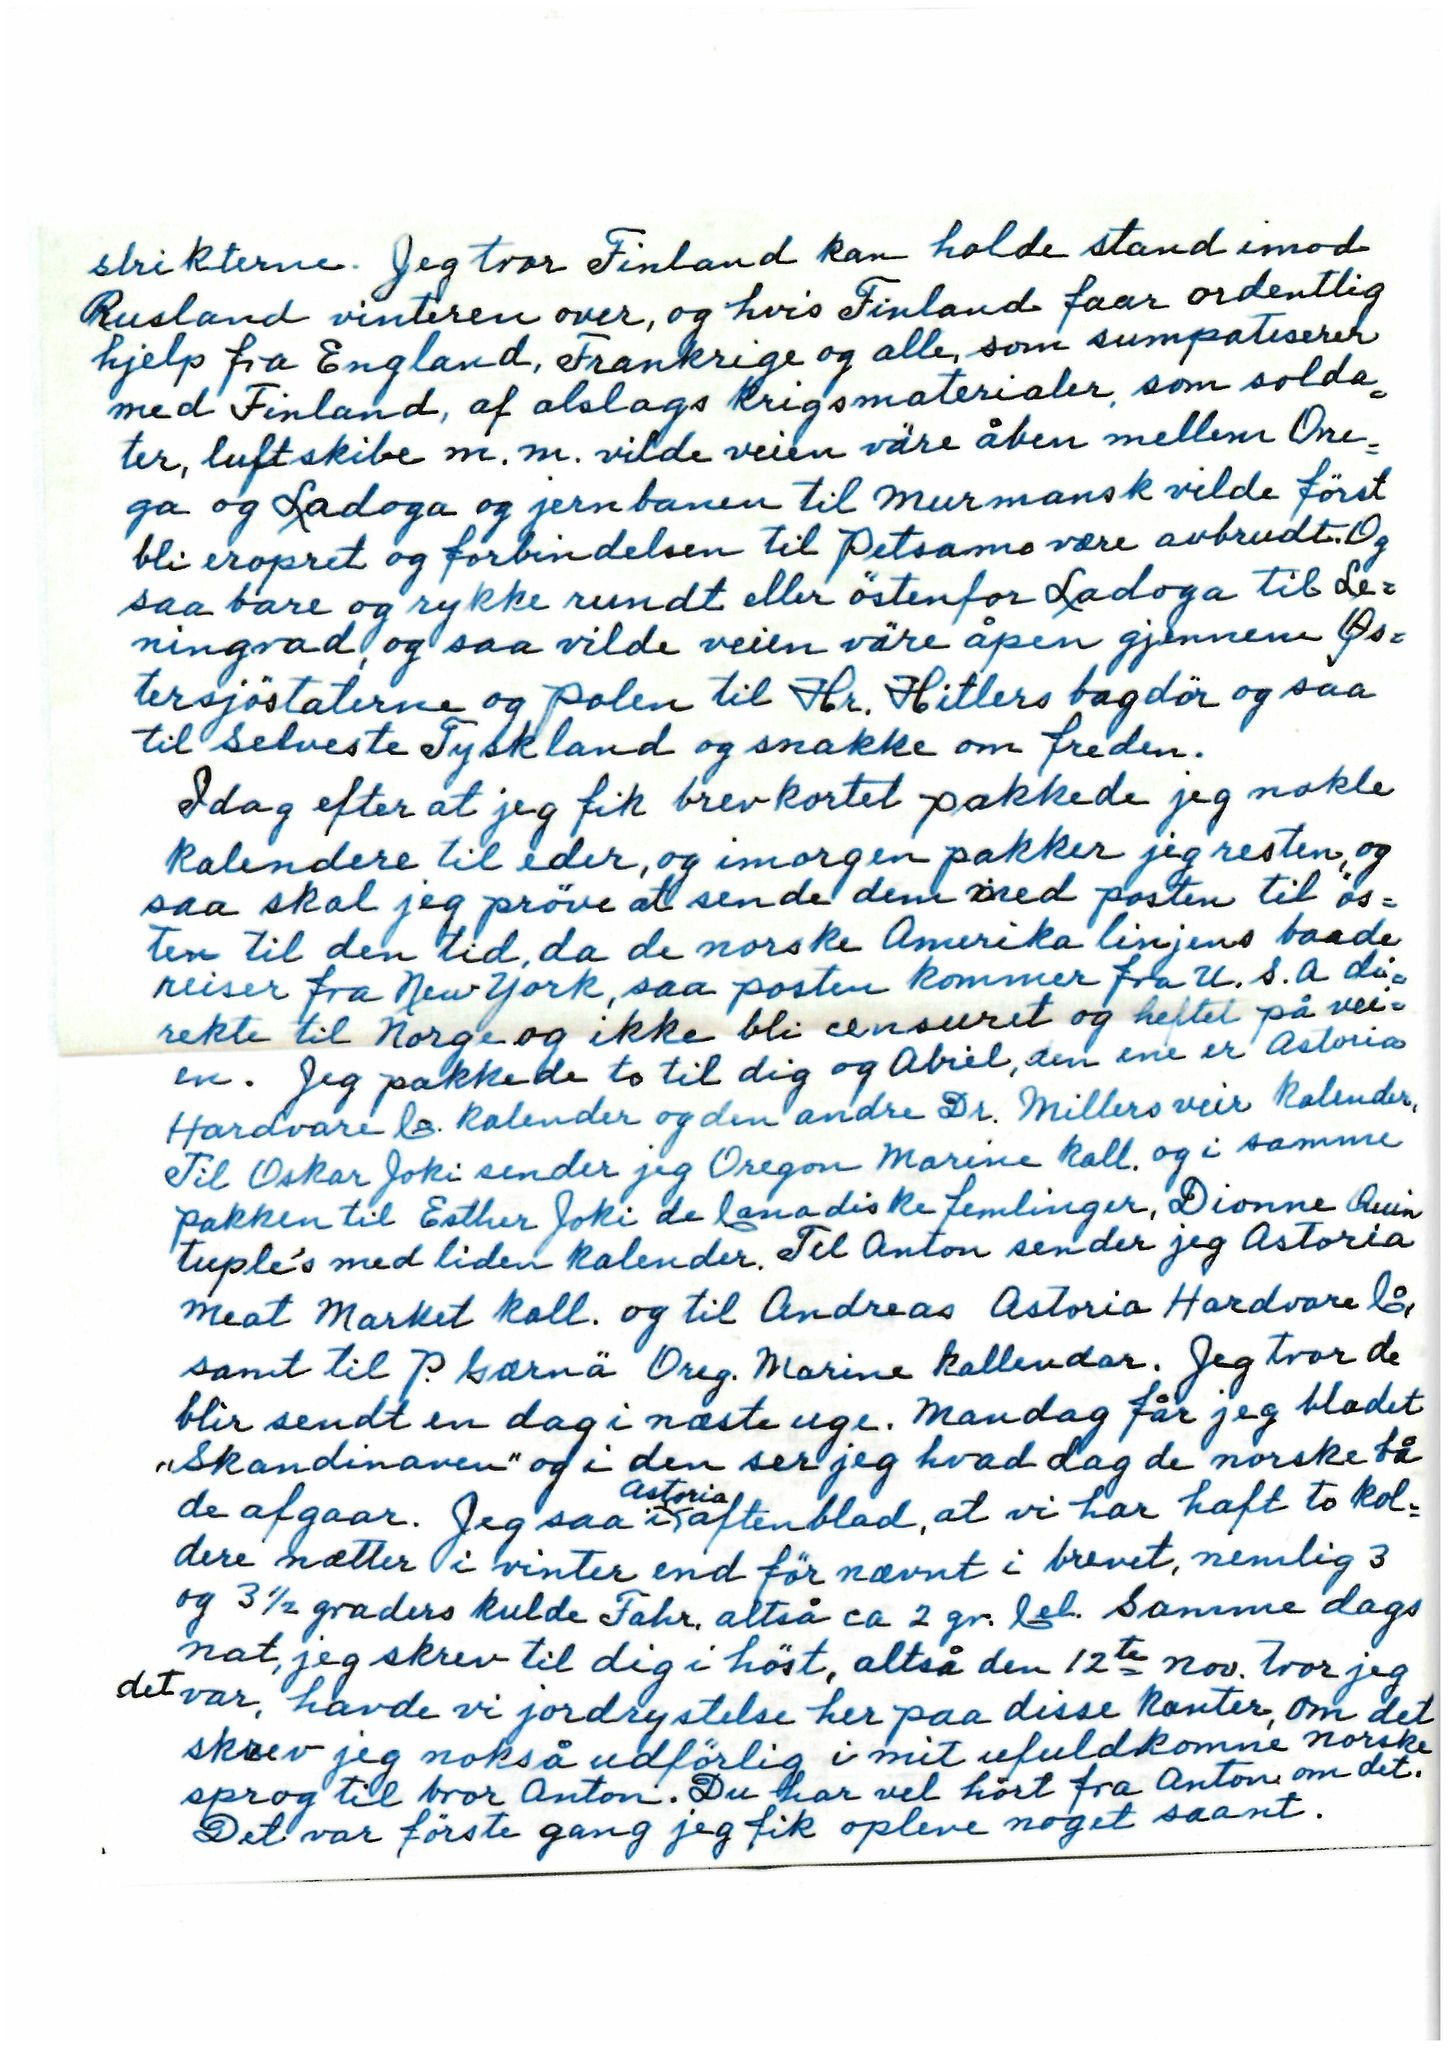 strikterne. Jeg tror Finland kan holde stand imod
Rusland vinteren over, og hvis Finland faar ordentlig
hjelp fra England, Frankrige og alle, som sumpatiserer
med Finland, af alslags krigsmaterialer, som solda=
ter, luftskibe m. m. vilde veien väre åben mellem One=
ga og Ladoga og jernbanen til Murmansk vilde först
bli eropret og forbindelsen til Petsamo være avbrudt. Og
saa bare og rykke rundt eller östenfor Ladoga til Le=
ningrad, og saa vilde veien väre åpen gjennem Øs=
tersjöstaterne og Polen til Hr. Hitlers bagdör og saa
til Selveste Tyskland og snakke om freden.
Idag efter at jeg fik brevkortet pakkede jeg nokle
kalendere til eder, og imorgen pakker jeg resten, og
saa skal jeg pröve at sende dem med posten til ös=
ten til den tid, da de norske Amerika linjens baade
reiser fra New York, saa posten kommer fra U. S. A di=
rekte til Norge og ikke bli censuret og heftet på vei=
en. Jeg pakkede to til dig og Abiel, den ene er Astoria
Hardvare Co. kalender og den andre Dr. Millers veir kalender.
Til Oskar Joki sender jeg Oregon Marine kall. og i samme
pakken til Esther Joki de Canadiske femlinger, Dionne Quin
tuple's med liden kalender. Til Anton sender jeg Astoria
Meat Market kall. og til Andreas Astoria Hardvare Co,
samt til P. Gærnä Oreg. Marine kallendar. Jeg tror de
blir sendt en dag i næste uge. Mandag får jeg bladet
"Skandinaven" og i den ser jeg hvad dag de norske bå
de afgaar. Jeg saa i Astoria aftenblad, at vi har haft to kol=
dere nætter i vinter end för nævnt i brevet, nemlig 3
og 3 1/2 graders kulde Fahr. altså ca 2 gr. Cel. Samme dags
nat, jeg skrev til dig i höst, altså den 12te nov. tror jeg
det var, havde vi jordrystelse her paa disse kanter, om det
skrev jeg nokså udförlig i mit ufuldkomne norske
sprog til bror Anton. Du har vel hört fra Anton om det.
Det var förste gang jeg fik opleve noget saant.